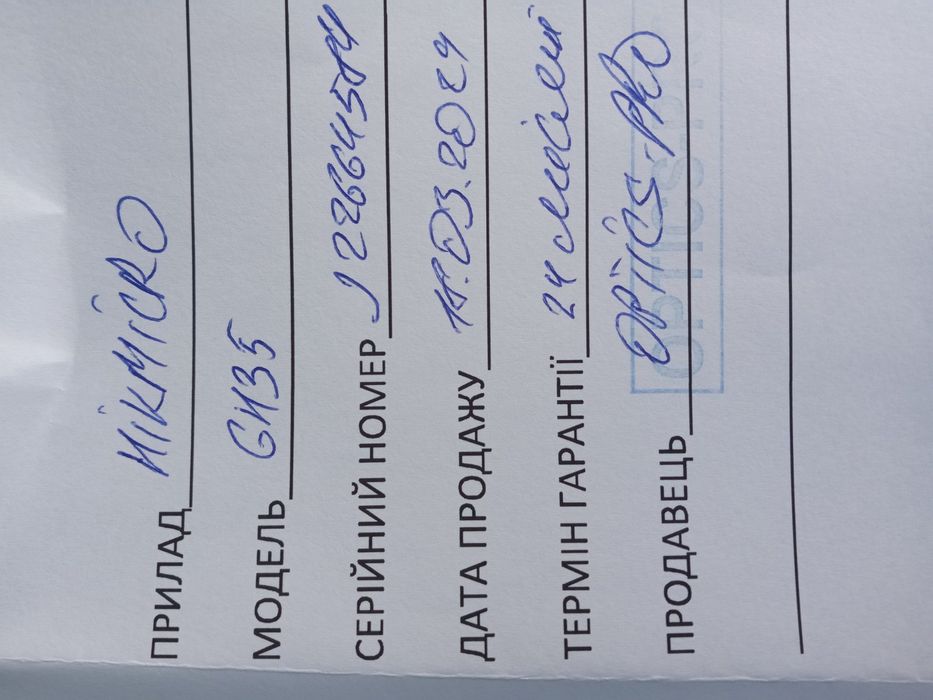 ПРИЛАД HiKMiCRO
МОДЕЛЬ GH35
СЕРІЙНИЙ НОМЕР
ДАТА ПРОДАЖУ 18.03.2024
ТЕРМІН ГАРАНТІЇ 24 місяці
ПРОДАВЕЦЬ OPTiCS-PRO
OPTICS